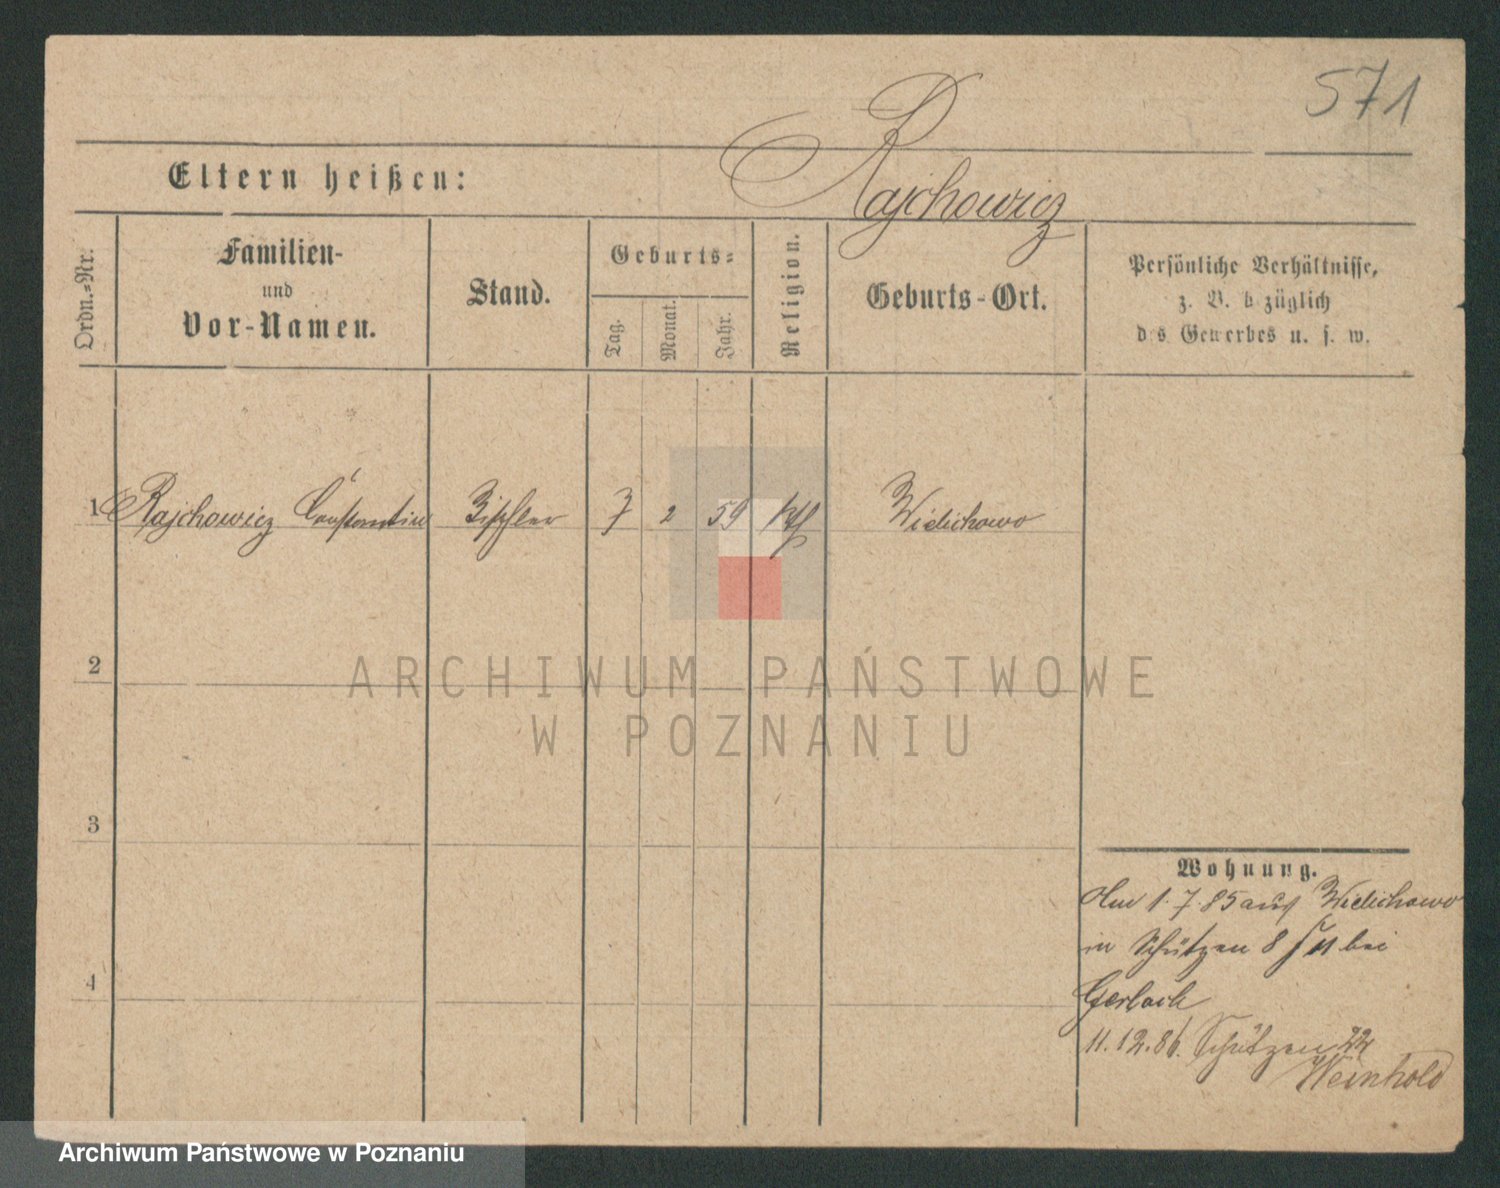 571
Rajchowicz
Eltern heißen:
Ordn.=Nr.
Familien-
und
Vor-Namen.
Stand.
Geburts=
Tag.
Monat.
Jahr.
Religion.
Geburts-Ort.
Persönliche Verhältnisse,
z. B. b züglich
d s Gewerbes u. s. w.
1 Rajchowicz Constantin Tischler 7 2 59 kth Wielichowo
2
ARCHIWUM PAŃSTWOWE
W POZNANIU
3
4
Wohnung.
1.7.85 aus Wielichowo
in Schützen 8 bei
Gerlach
11.12.86. Schützen 22
Weinhold
Archiwum Państwowe w Poznaniu